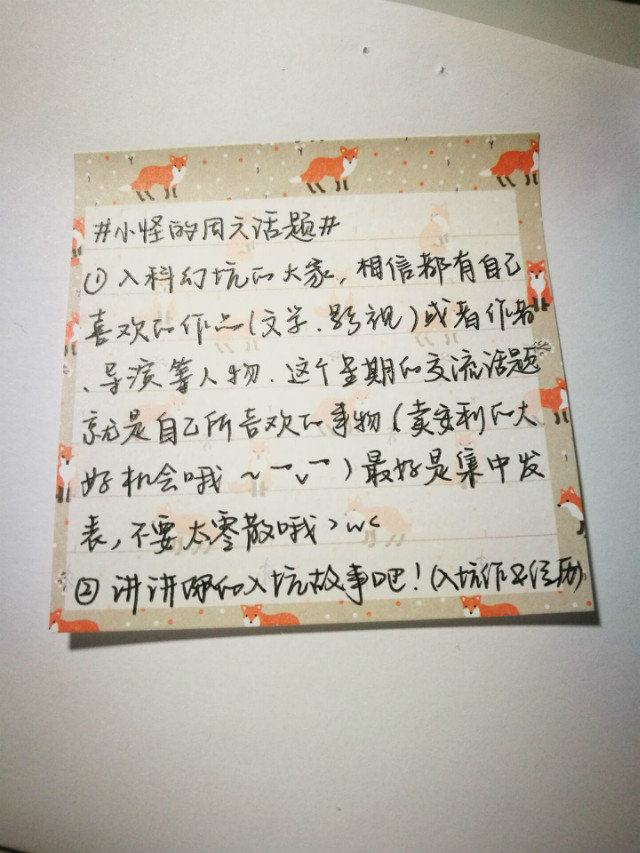 #小怪的周六话题#
①入科幻坑的大家,相信都有自己
喜欢的作品(文学、影视)或者作者
、导演等人物.这个星期的交流话题
就是自己所喜欢的事物(卖安利的大
好机会哦~￣v￣)最好是集中发
表,不要太零散哦>w<
②讲讲的入坑故事吧!(入坑作品经历)